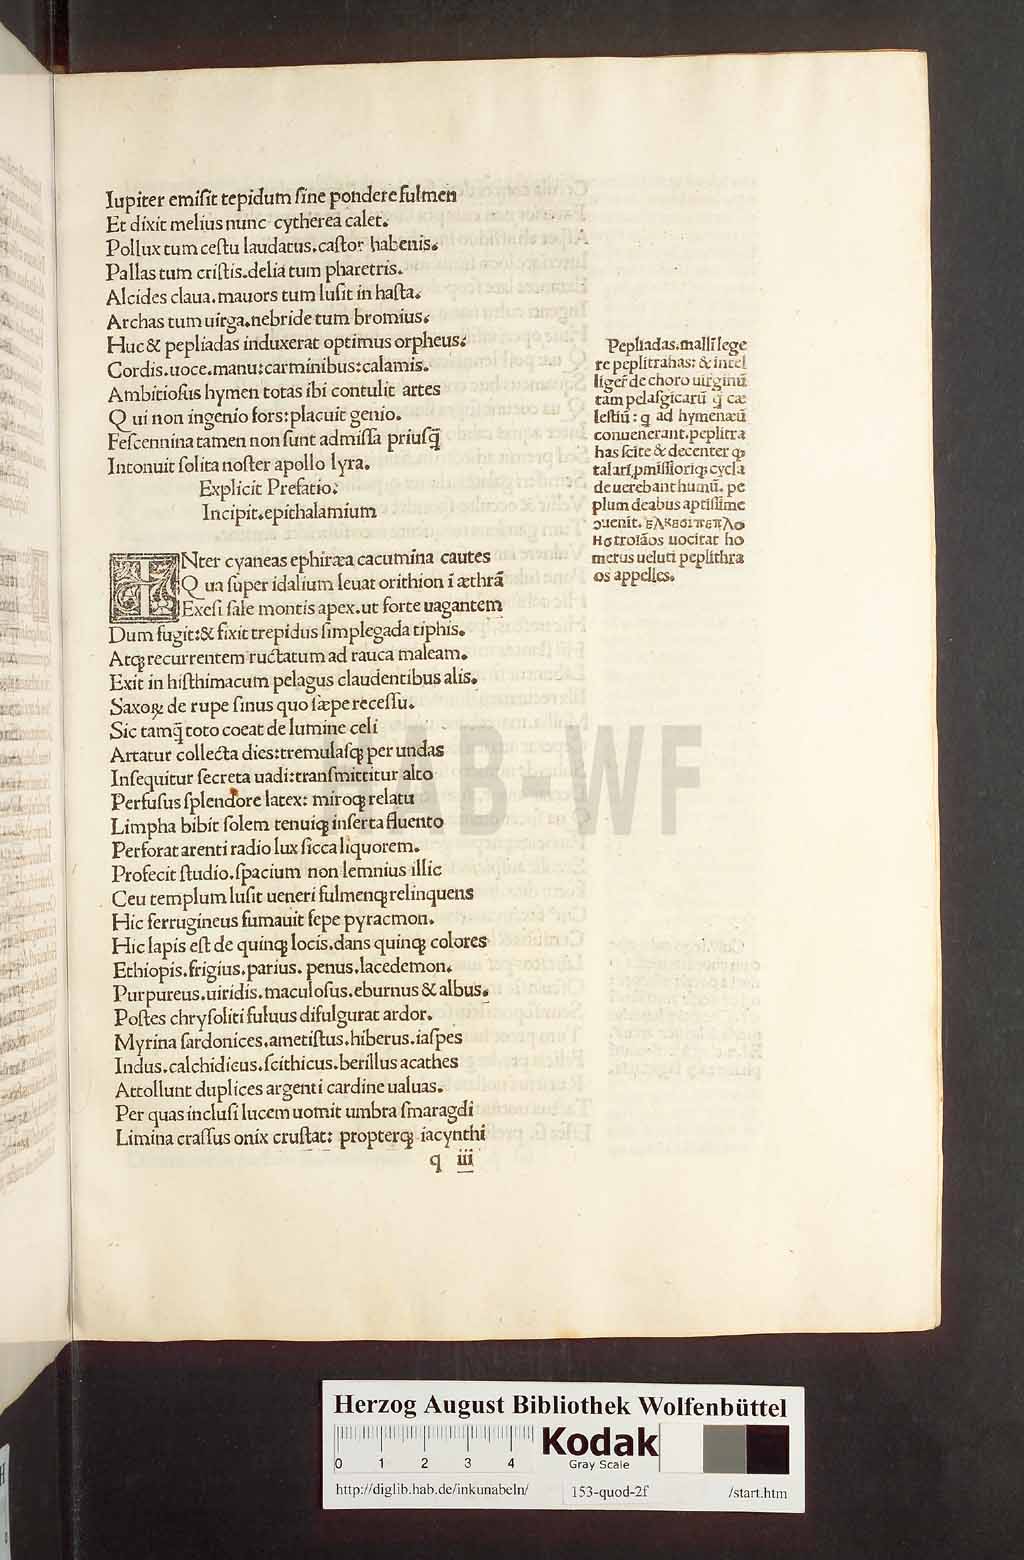 Iupiter emisit tepidum sine pondere fulmen
Et dixit melius nunc cytherea calet.
Pollux tum cestu laudatus.castor habenis.
Pallas tum cristis.delia tum pharetris.
Alcides claua.mauors tum lusit in hasta.
Archas tum uirga.nebride tum bromius.
Huc & pepliadas induxerat optimus orpheus.
Cordis.uoce.manu:carminibus:calamis.
Ambitiosus hymen totas ibi contulit artes
Q ui non ingenio fors:placuit genio.
Fescennina tamen non sunt admissa priusq̃
Intonuit solita noster apollo lyra.
Explicit Prefatio:
Incipit.epithalamium
INter cyaneas ephiræa cacumina cautes
Q ua super idalium leuat orithion ī æthrā
Exesi sale montis apex.ut forte uagantem
Dum fugit:& fixit trepidus simplegada tiphis.
Atqꝫ recurrentem ructatum ad rauca maleam.
Exit in histhimacum pelagus claudentibus alis.
Saxoꝝ de rupe sinus quo sæpe recessu.
Sic tamq̃ toto coeat de lumine celi
Artatur collecta dies:tremulasqꝫ per undas
Insequitur secreta uadi:transmittitur alto
Perfusus splendore latex: miroqꝫ relatu
Limpha bibit solem tenuiqꝫ inserta fluento
Perforat arenti radio lux sicca liquorem.
Profecit studio.spacium non lemnius illic
Ceu templum lusit ueneri fulmenqꝫ relinquens
Hic ferrugineus fumauit sepe pyracmon.
Hic lapis est de quinqꝫ locis.dans quinqꝫ colores
Ethiopis.frigius.parius. penus.lacedemon.
Purpureus.uiridis.maculosus.eburnus & albus.
Postes chrysoliti fuluus difulgurat ardor.
Myrina sardonices.ametistus.hiberus.iaspes
Indus.calchidicus.scithicus.berillus acathes
Attollunt duplices argenti cardine ualuas.
Per quas inclusi lucem uomit umbra smaragdi
Limina crassus onix crustat: propterqꝫ iacynthi
q iii
Pepliadas.malli lege
re peplitrahas: & intel
liger̃ de choro uirginū
tam pelasgicarū q̃ cæ
lestiū: q ad hymenæū
conuenerant.peplitra
has scite & decenter qꝫ
talari ꝓmissioriqꝫ cycla
de uerebant humū. pe
plum deabus aptissime
ↄuenit. ελκεσιπεπλο
нσ troiāos uocitat ho
merus ueluti peplithra
os appelles.
HAB-WF
Herzog August Bibliothek Wolfenbüttel
0 1 2 3 4
Kodak
Gray Scale
http://diglib.hab.de/inkunabeln/ 153-quod-2f /start.htm